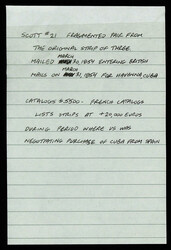 SCOTT #21 FRAGMENTED PAIR FROM
THE ORIGINAL STRIP OF THREE
MARCH
MAILED 30, 1854 ENTERING BRITISH
MARCH
MAILS ON 31, 1854 FOR HAVANNA, CUBA
CATALOGS $5500. FRENCH CATALOG
LISTS STRIPS AT +20,000 EUROS
DURING PERIOD WHERE US WAS
NEGOTIATING PURCHASE OF CUBA FROM SPAIN